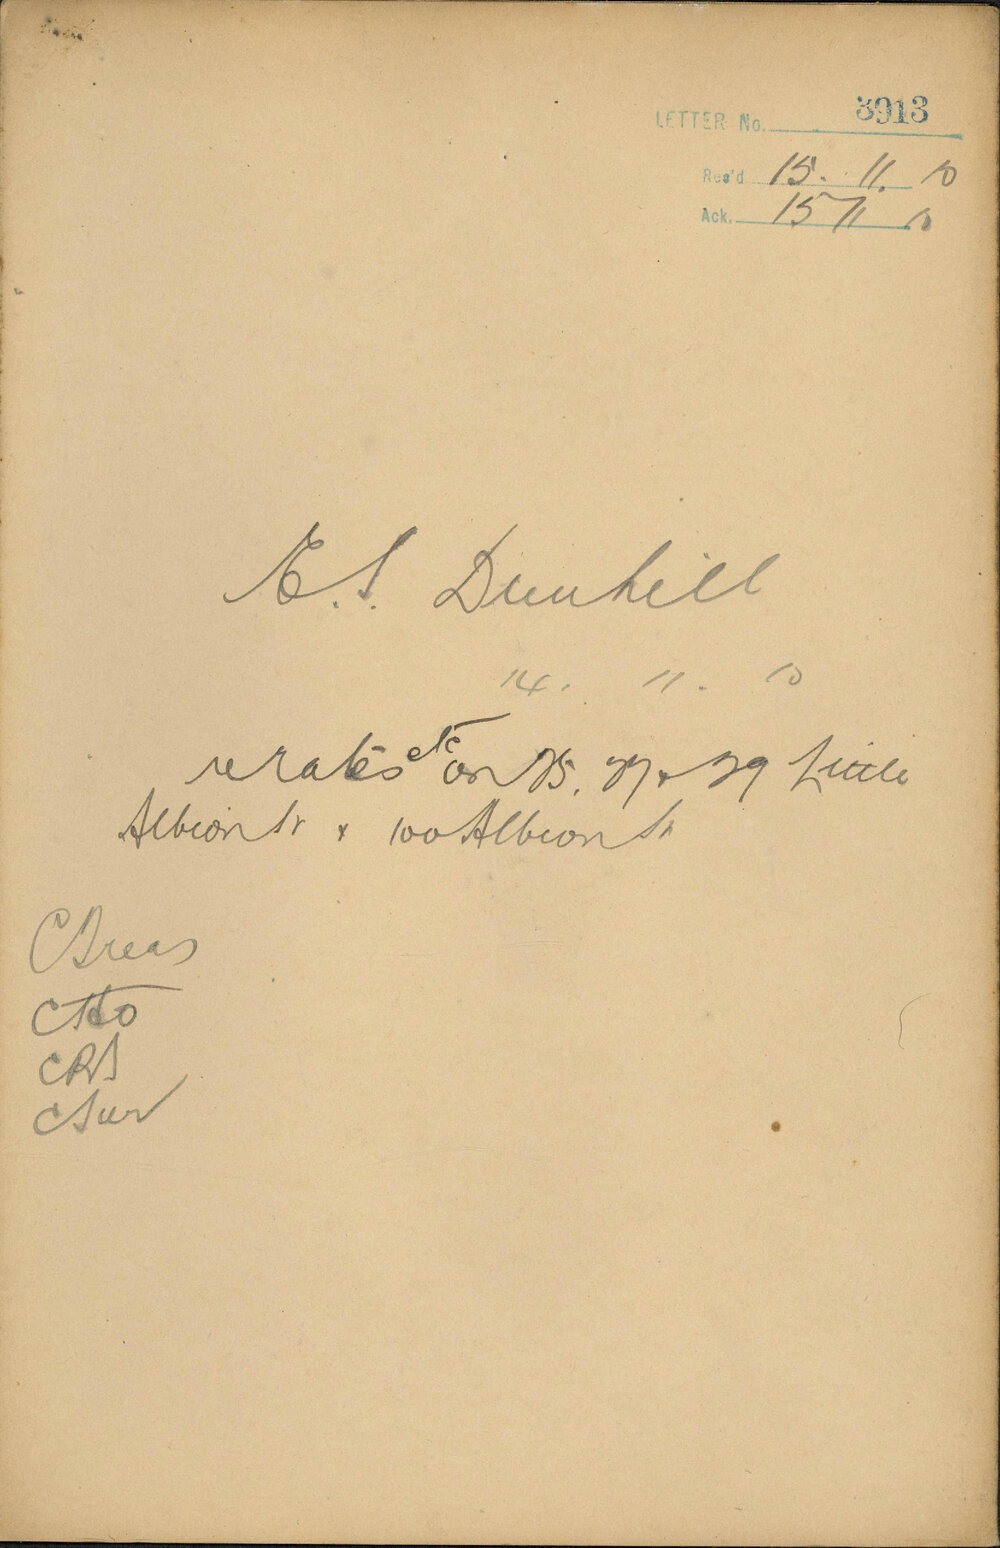 LETTER No. 3913
Rec'd 15. 11. 10
Ack. 15 11 10
E.S. Dunhill
14. 11. 10
re rates etc on 75, 77 & 79 Little
Albion St & 100 Albion St
CTreas
CHO
CRS
CSur